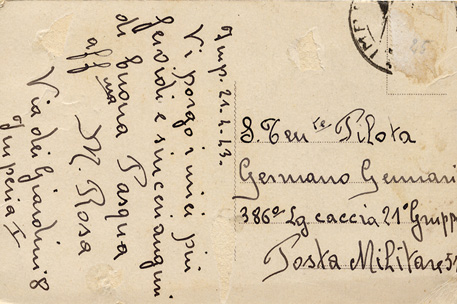 Imp. 21.4.43.
Vi porgo i miei più
fervidi e sinceri auguri
di buona Pasqua
aff.ma
M. Rosa
Via dei Giardini 8
Imperia I
S. Ten.te Pilota
Germano Gennari
386a Sq caccia 21° Grupp
Posta Militare 3
IMPE